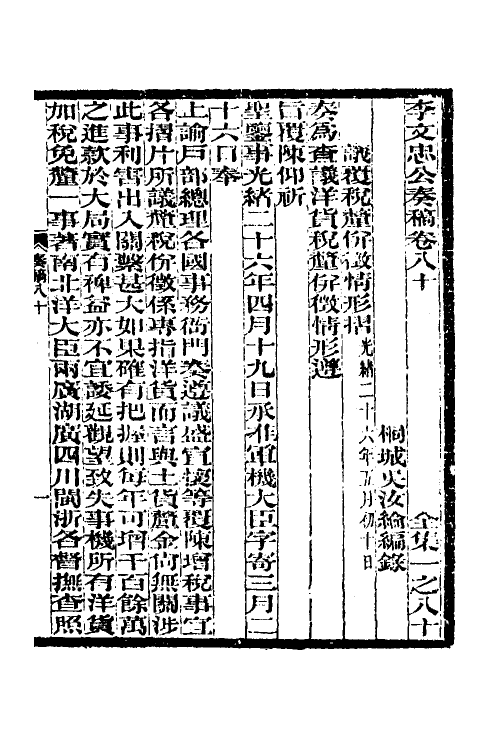 李文忠公奏稿卷八十　全集一之八十
桐城吳汝綸編錄
議復稅釐併徵情形摺光緒二十六年五月初十日
奏爲查議洋貨稅釐併徵情形遵
旨覆陳仰祈
聖鑒事光緒二十六年四月十九日承准軍機大臣字寄三月二
十六日奉
上諭戶部總理各國事務衙門奏遵議盛宣懷等覆陳增稅事宜
各摺片所議釐稅併徵係專指洋貨而言與土貨釐金尚無關涉
此事利害出入關繫甚大如果確有把握則每年可增千百餘萬
之進款於大局實有裨益亦不宜諉延觀望致失事機所有洋貨
加稅免釐一事著南北洋大臣兩廣湖廣四川閩浙各督撫查照
奏稿八十
一